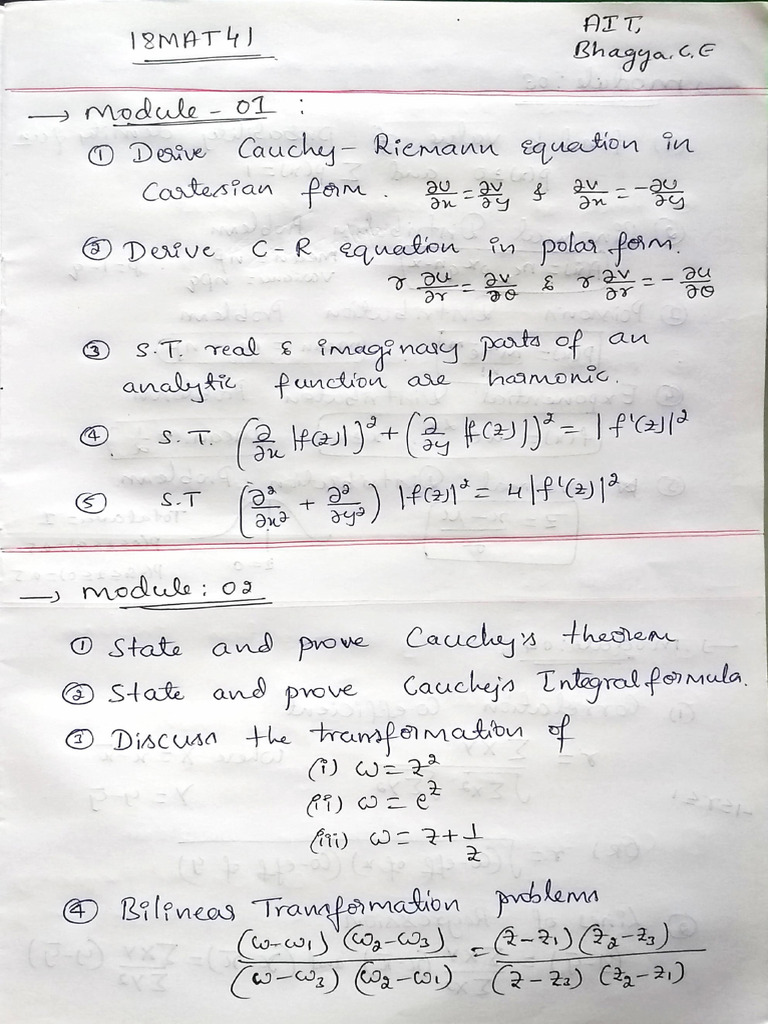 18MAT41
AIT,
Bhagya.C.E
→ Module - 01 :
① Derive Cauchy-Riemann Equation in
Cartesian form. ∂u/∂x = ∂v/∂y & ∂v/∂x = -∂u/∂y
② Derive C-R equation in polar form.
r ∂u/∂r = ∂v/∂θ & r ∂v/∂r = - ∂u/∂θ
③ S.T. real & imaginary parts of an
analytic function are harmonic.
④ S.T. (∂/∂x |f(z)|)² + (∂/∂y |f(z)|)² = |f'(z)|²
⑤ S.T (∂²/∂x² + ∂²/∂y²) |f(z)|² = 4 |f'(z)|²
→ Module : 02
① State and prove Cauchy's theorem
② State and prove Cauchy's Integral formula.
③ Discuss the transformation of
(i) ω = z²
(ii) ω = e^z
(iii) ω = z + 1/z
④ Bilinear Transformation problems
(ω-ω₁) (ω₂-ω₃) / (ω-ω₃) (ω₂-ω₁) = (z-z₁) (z₂-z₃) / (z-z₃) (z₂-z₁)